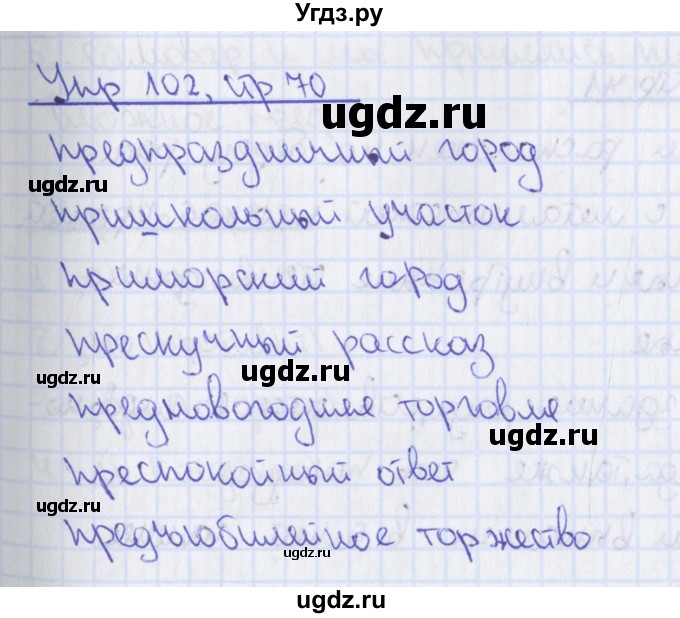 Угдз.ру
Упр 102, стр 70
ugdz.ru
предпраздничный город
ugdz.ru
пришкольный участок
ugdz.ru
приморский город
прескучный рассказ
ugdz.ru
ugdz.ru
предновогодняя торговля
ugdz.ru
преспокойный ответ
ugdz.ru
предъюбилейное торжество
ugdz.ru
ugdz.ru